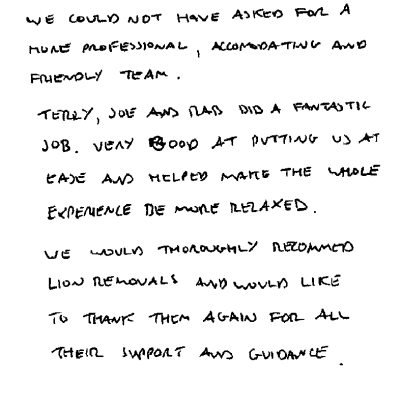 WE COULD NOT HAVE ASKED FOR A
MORE PROFESSIONAL, ACCOMODATING AND
FRIENDLY TEAM.
TERRY, JOE AND RAB DID A FANTASTIC
JOB. VERY GOOD AT PUTTING US AT
EASE AND HELPED MAKE THE WHOLE
EXPERIENCE BE MORE RELAXED.
WE WOULD THOROUGHLY RECOMMED
LION REMOVALS AND WOULD LIKE
TO THANK THEM AGAIN FOR ALL
THEIR SUPPORT AND GUIDANCE.